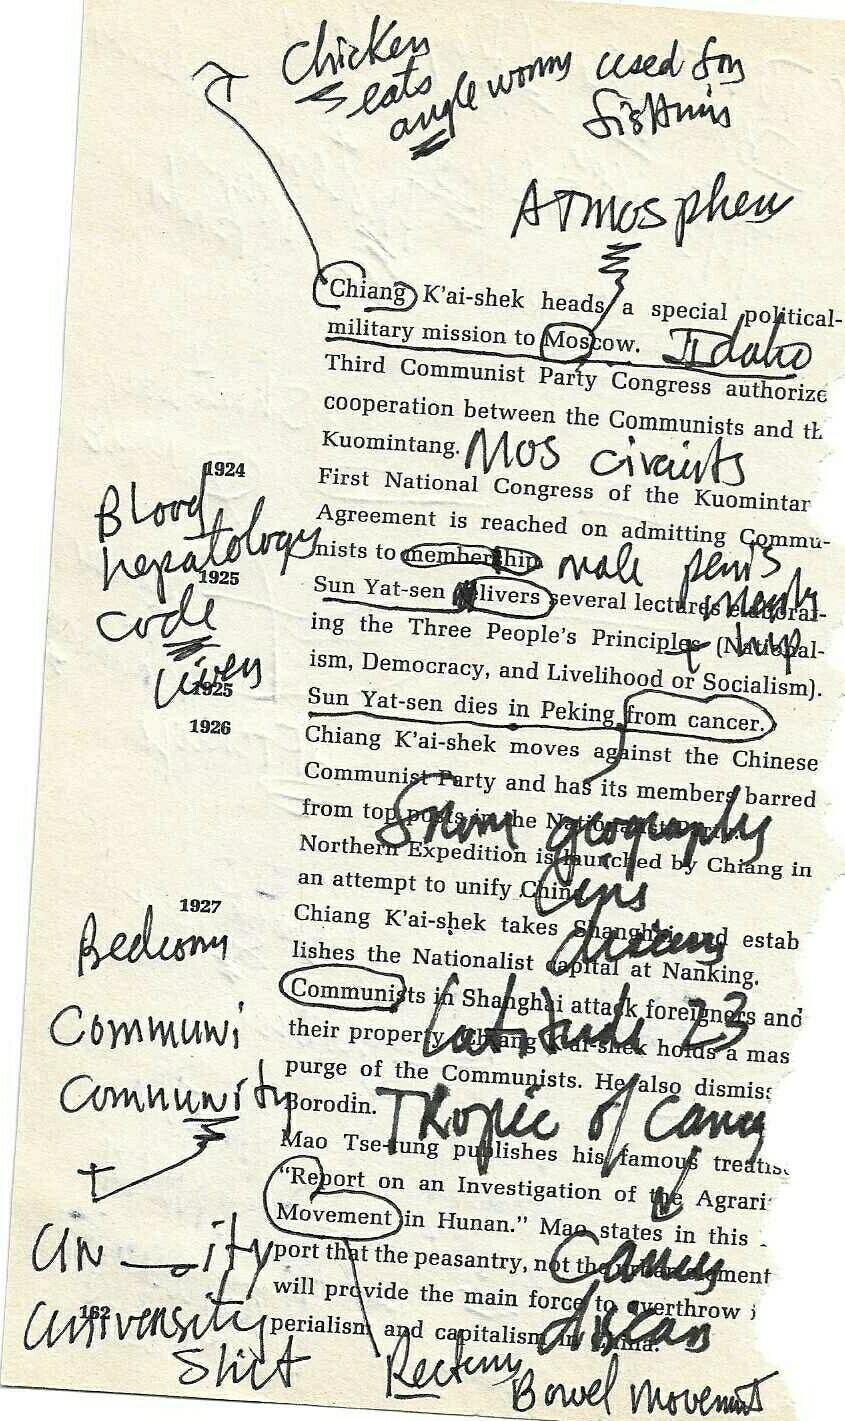 Chicken
eats
angle worms used for
ATMosphere
Chiang K'ai-shek heads a special political-
military mission to Moscow. Idaho
Third Communist Party Congress authorize
cooperation between the Communists and th
Kuomintang. Mos circuits
1924
First National Congress of the Kuomintan
Agreement is reached on admitting Commu-
nists to membership male penis
Blood
hepatology
code
1925
Sun Yat-sen livers several lectures elaborat-
ing the Three People's Principles (National-
+ hip
ism, Democracy, and Livelihood or Socialism).
livers
1925
Sun Yat-sen dies in Peking from cancer.
1926
Chiang K'ai-shek moves against the Chinese
Communist Party and has its members barred
from top posts in the Nationalist
from geography
Northern Expedition is launched by Chiang in
an attempt to unify China
1927
Chiang K'ai-shek takes Shanghai and estab
lishes the Nationalist capital at Nanking.
Communists in Shanghai attack foreigners and
Latitude 23
their property. Chiang K'ai-shek holds a mas
purge of the Communists. He also dismiss
Borodin.
Communi
Community
Tropic of Cancer
Mao Tse-tung publishes his famous treatis
"Report on an Investigation of the Agrari
Movement in Hunan." Mao states in this
+
un__ity
port that the peasantry, not the urban element
Cancer
will provide the main force to overthrow i
perialism and capitalism in China.
162
university
Shit
Rectum
Bowel Movement